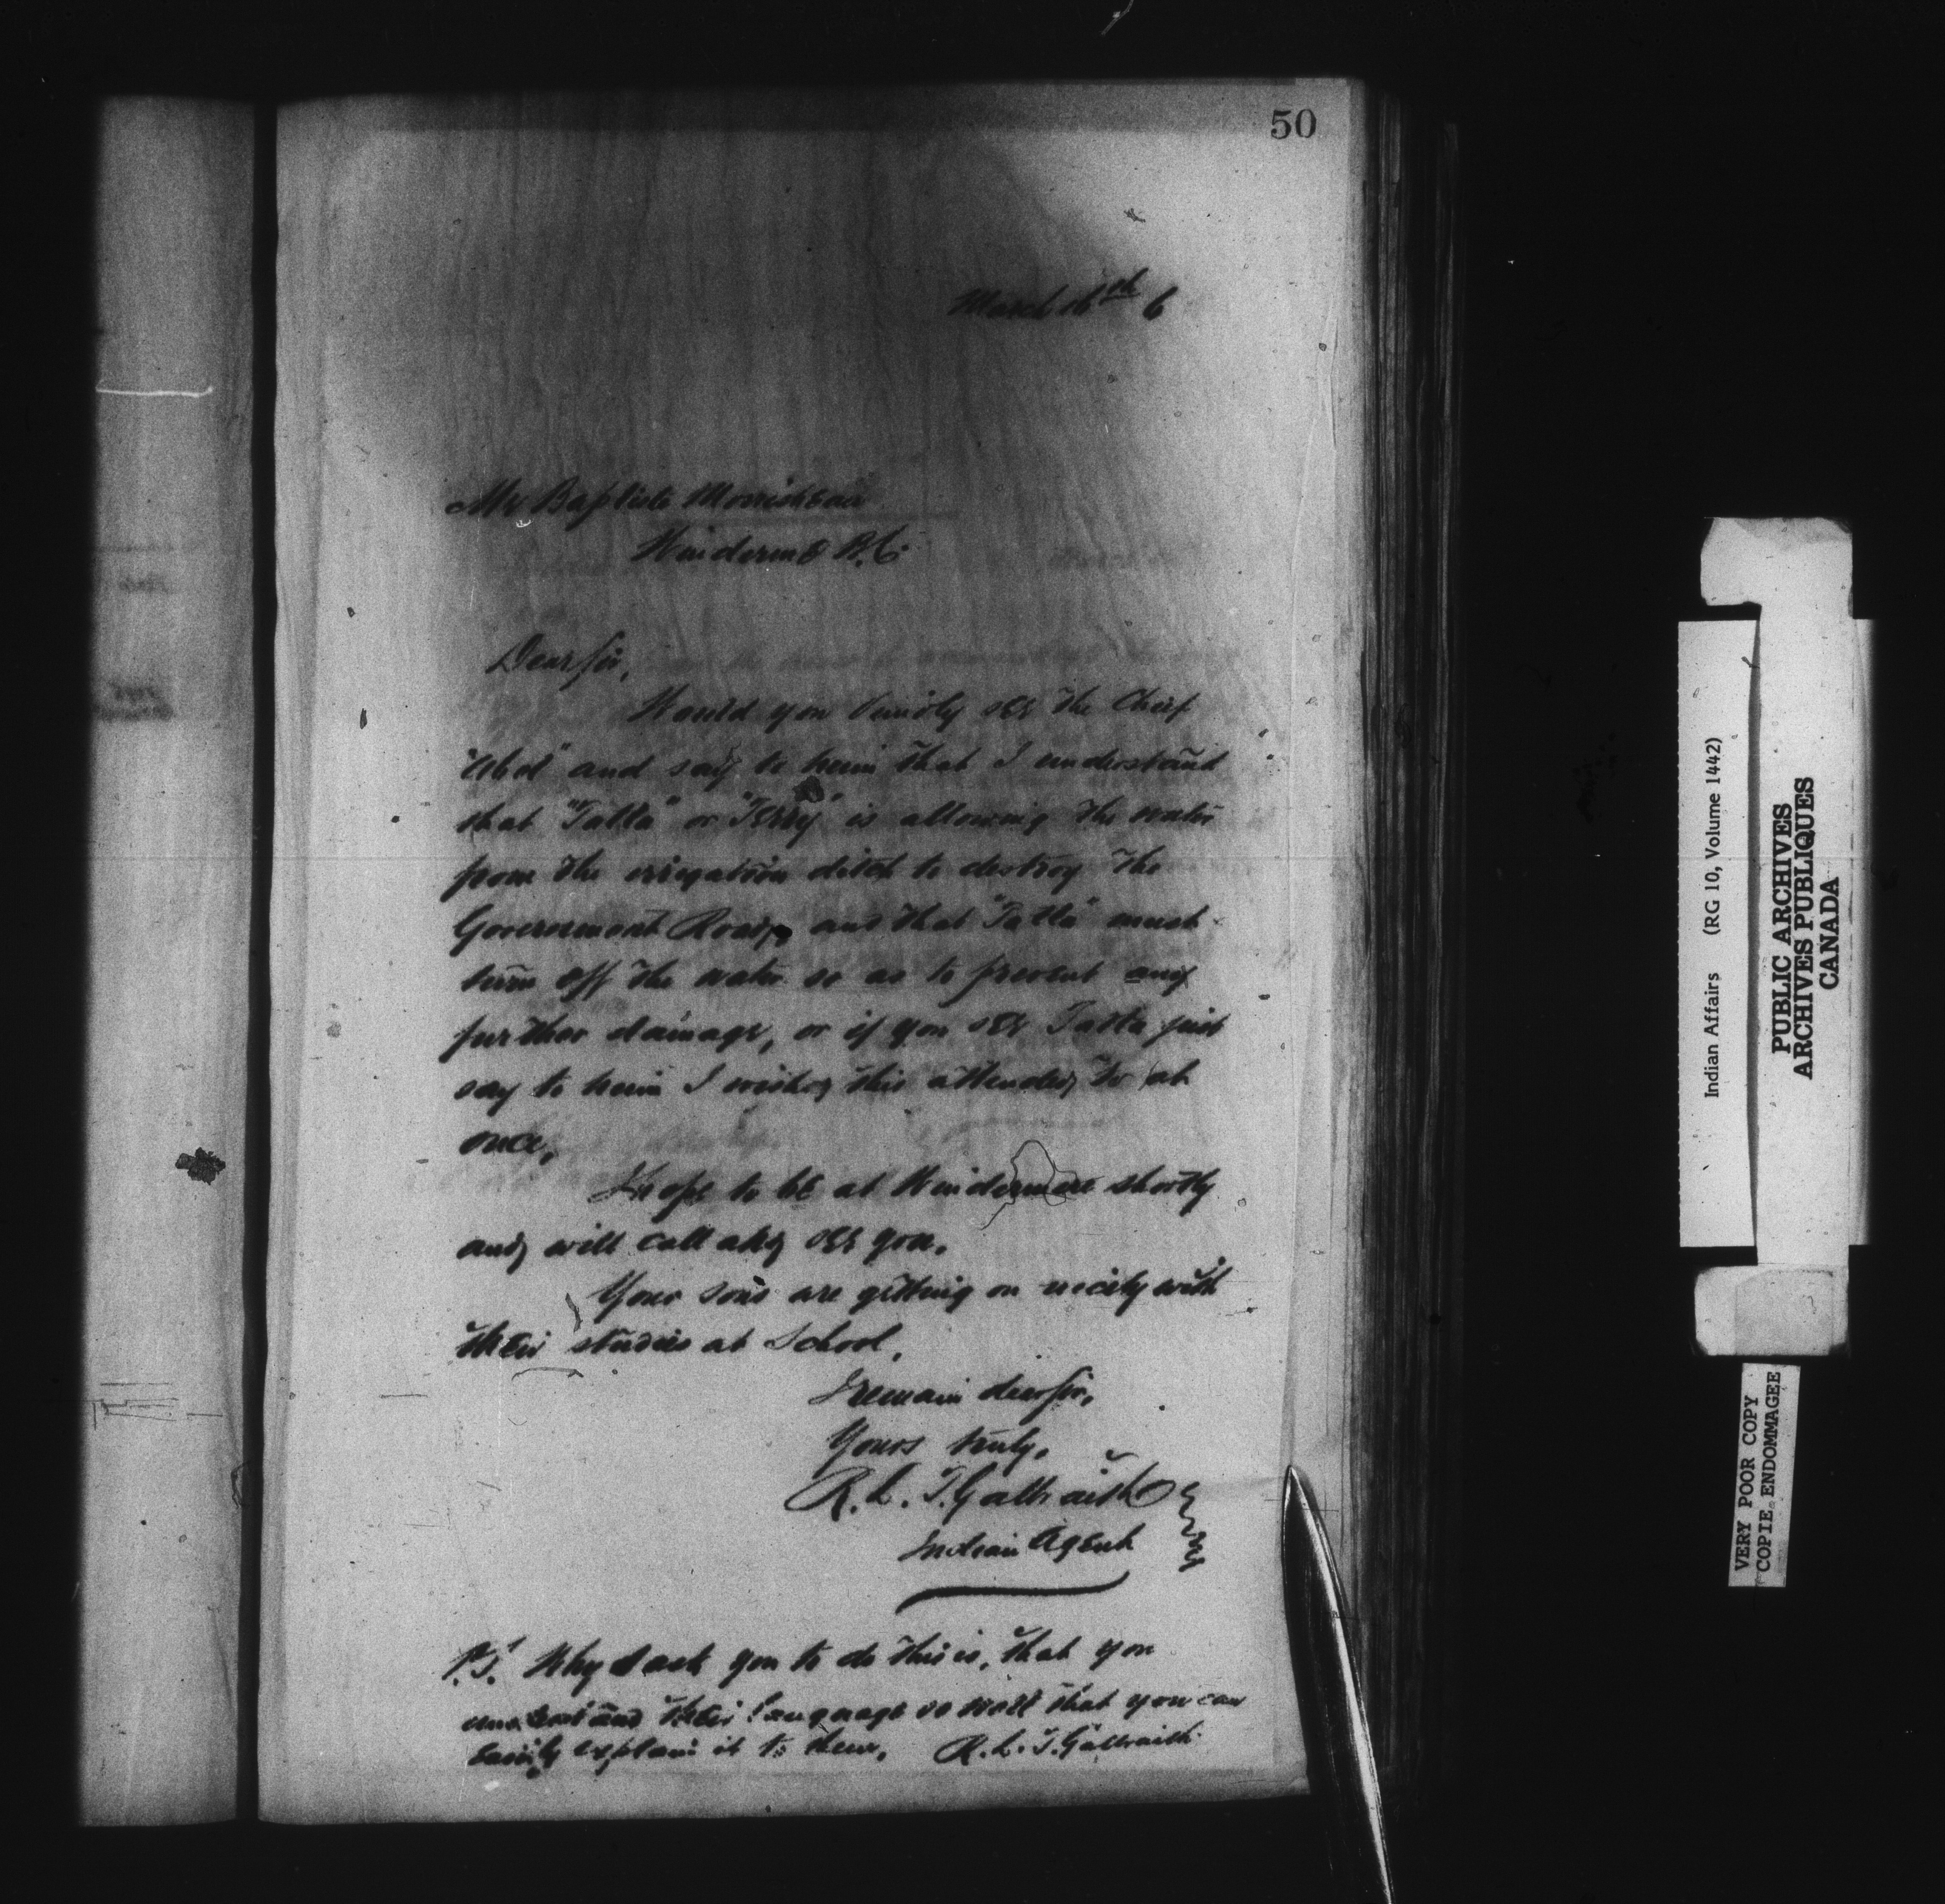 50
March 16th 6
Mr Baptiste Morrisheau
Windermere B.C.
Dear Sir,
Would you kindly see the Chief
"Abel" and say to him that I understand
that "Tatta" or "Terry" is allowing the water
from the irrigation ditch to destroy the
Government Road, and that "Tatta" must
turn off the water so as to prevent any
further damage, or if you see Tatta just
say to him I wished this attended to at
once,
I hope to be at Windermere shortly
and will call and see you.
Your sons are getting on nicely with
their studies at School,
I remain dear Sir,
Yours truly,
R. L. T. Galbraith
Indian Agent
P.S. Why I ask you to do this is, that you
understand their language so well that you can
easily explain it to them, R. L. T. Galbraith
Indian Affairs (RG 10, Volume 1442)
PUBLIC ARCHIVES
ARCHIVES PUBLIQUES
CANADA
VERY POOR COPY
COPIE ENDOMMAGEE